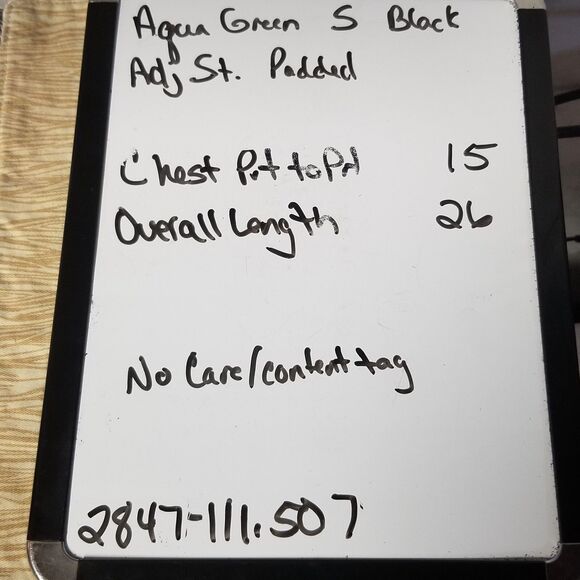 Aqua Green S Black
Adj St. Padded
Chest Pit to Pit 15
Overall Length 26
No Care/content tag
2847-111.507